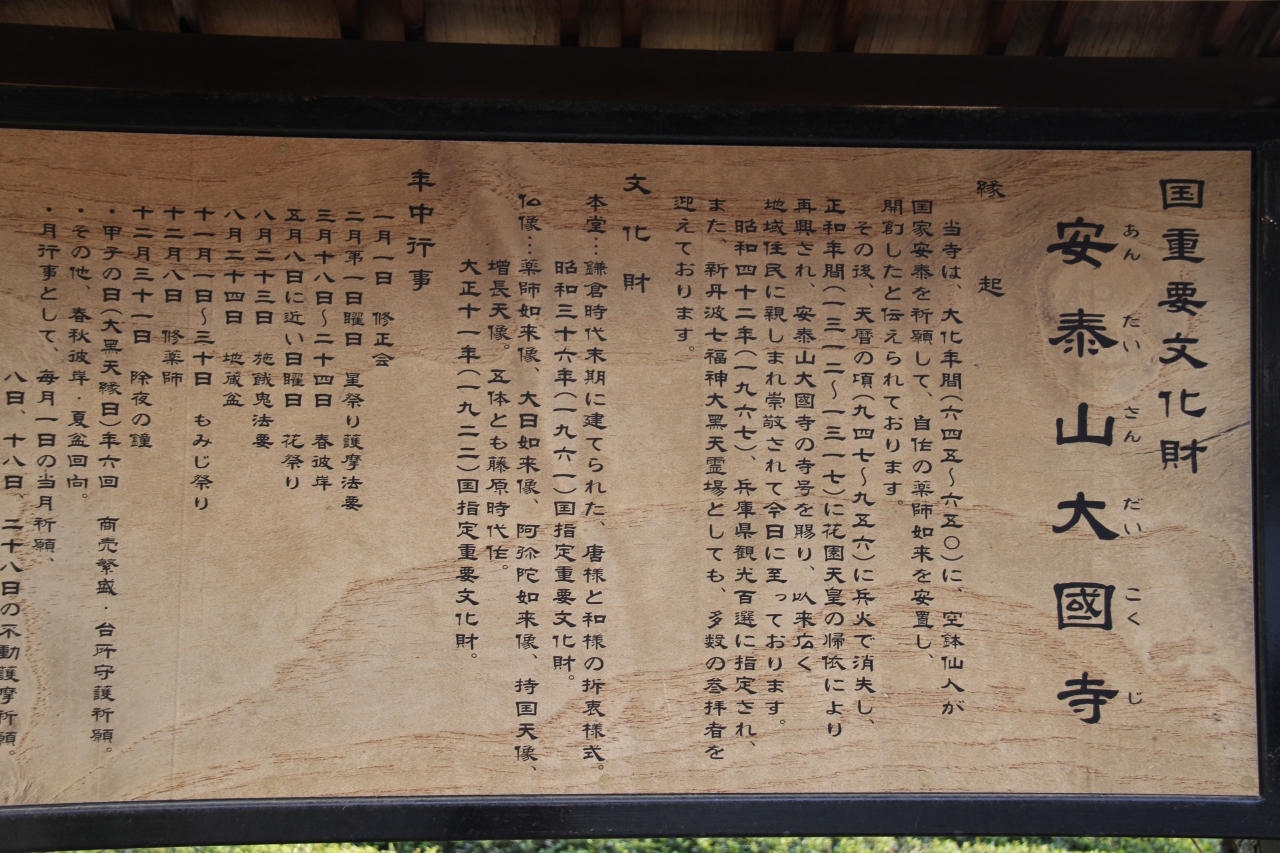 国重要文化財
安泰山大國寺
あんたいさんだいこくじ
縁起
当寺は、大化年間(六四五～六五〇)に、空鉢仙人が
国家安泰を祈願して、自作の薬師如来を安置し、
開創したと伝えられております。
その後、天暦の頃(九四七～九五六)に兵火で消失し、
正和年間(一三一二～一三一七)に花園天皇の帰依により
再興され、安泰山大國寺の寺号を賜り、以来広く
地域住民に親しまれ崇敬されて今日に至っております。
昭和四十二年(一九六七)、兵庫県観光百選に指定され、
また、新丹波七福神大黑天霊場としても、多数の参拝者を
迎えております。
文化財
本堂…鎌倉時代末期に建てられた、唐様と和様の折衷様式。
昭和三十六年(一九六一)国指定重要文化財。
仏像…薬師如来像、大日如来像、阿弥陀如来像、持国天像、
増長天像。五体とも藤原時代作。
大正十一年(一九二二)国指定重要文化財。
年中行事
一月一日 修正会
二月第一日曜日 星祭り護摩法要
三月十八日～二十四日 春彼岸
五月八日に近い日曜日 花祭り
八月二十三日 施餓鬼法要
八月二十四日 地蔵盆
十一月一日～三十日 もみじ祭り
十二月八日 修薬師
十二月三十一日 除夜の鐘
・甲子の日(大黑天縁日)年六回 商売繁盛・台所守護祈願。
・その他、春秋彼岸・夏盆回向。
・月行事として、毎月一日の当月祈願、
八日、十八日、二十八日の不動護摩祈願。